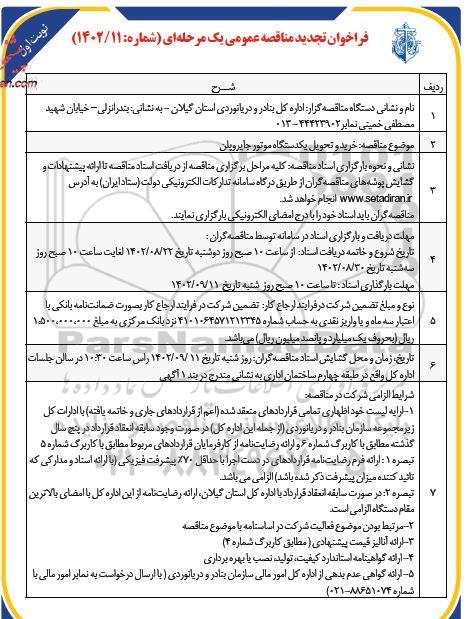 نوبت اول
فراخوان تجدید مناقصه عمومی یک مرحله‌ای (شماره: ۱۴۰۲/۱۱)
ردیف
شـــرح
۱
نام و نشانی دستگاه مناقصه گزار: اداره کل بنادر و دریانوردی استان گیلان - به نشانی: بندرانزلی- خیابان شهید
مصطفی خمینی نمابر ۴۴۴۲۳۹۰۲-۰۱۳
۲
موضوع مناقصه: خرید و تحویل یکدستگاه موتور جایروپلن
۳
نشانی و نحوه بارگزاری اسناد مناقصه: کلیه مراحل برگزاری مناقصه از دریافت اسناد مناقصه تا ارائه پیشنهادات و
گشایش پوشه‌های مناقصه گران از طریق درگاه سامانه تدارکات الکترونیکی دولت (ستاد ایران) به آدرس
www.setadiran.ir انجام خواهد شد.
مناقصه گران باید اسناد خود را با درج امضای الکترونیکی بارگزاری نمایند.
۴
مهلت دریافت و بارگزاری اسناد در سامانه توسط مناقصه گران:
تاریخ شروع و خاتمه دریافت اسناد: از ساعت ۱۰ صبح روز دوشنبه تاریخ ۱۴۰۲/۰۸/۲۲ لغایت ساعت ۱۰ صبح روز
سه‌شنبه تاریخ ۱۴۰۲/۰۸/۳۰
مهلت بارگذاری اسناد: تا ساعت ۱۰ صبح روز شنبه تاریخ ۱۴۰۲/۰۹/۱۱
۵
نوع و مبلغ تضمین شرکت درفرایند ارجاع کار: تضمین شرکت در فرایند ارجاع کار بصورت ضمانت‌نامه بانکی با
اعتبار سه ماه و یا واریز نقدی به حساب شماره ۴۱۰۱۰۶۴۵۷۱۲۱۲۳۴۵ نزد بانک مرکزی به مبلغ ۱،۵۰۰،۰۰۰،۰۰۰
ریال (بحروف یک میلیارد و پانصد میلیون ریال) می‌باشد.
۶
تاریخ، زمان و محل گشایش اسناد مناقصه گران: روز شنبه تاریخ ۱۴۰۲/۰۹/۱۱ راس ساعت ۱۰:۳۰ در سالن جلسات
اداره کل واقع در طبقه چهارم ساختمان اداری به نشانی مندرج در بند ۱ آگهی
۷
شرایط الزامی شرکت در مناقصه:
۱-ارایه لیست خود اظهاری تمامی قراردادهای منعقد شده (اعم از قراردادهای جاری و خاتمه یافته) با ادارات کل
زیرمجموعه سازمان بنادر و دریانوردی (از جمله این اداره کل) در صورت وجود سابقه انعقاد قرارداد در پنج سال
گذشته مطابق با کاربرگ شماره ۶ و ارائه رضایت‌نامه از کارفرمایان قراردادهای مربوط مطابق با کاربرگ شماره ۵
تبصره ۱: ارائه فرم رضایت‌نامه قراردادهای در دست اجرا با حداقل ۷۰٪ پیشرفت فیزیکی (با ارائه اسناد و مدارکی که
تائید کننده میزان پیشرفت ذکر شده باشد) الزامی می باشد.
تبصره ۲: در صورت سابقه انعقاد قرارداد با اداره کل استان گیلان، ارائه رضایت‌نامه از این اداره کل با امضای بالاترین
مقام دستگاه الزامی است.
۲-مرتبط بودن موضوع فعالیت شرکت در اساسنامه با موضوع مناقصه
۳-ارائه آنالیز قیمت پیشنهادی (مطابق کاربرگ شماره ۴)
۴-ارائه گواهینامه استاندارد کیفیت، تولید، نصب یا بهره برداری
۵-ارائه گواهی عدم بدهی از اداره کل امور مالی سازمان بنادر و دریانوردی (با ارسال درخواست به نمابر امور مالی با
شماره ۸۸۶۵۱۰۷۴-۰۲۱)